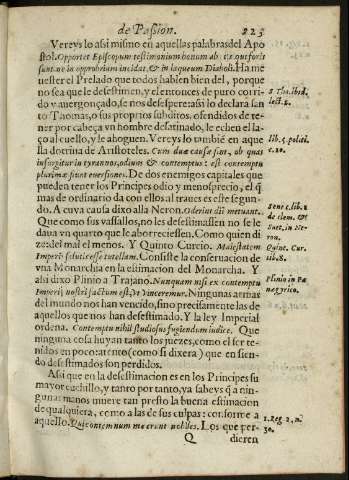 de Pasion. 225
Vereys lo asi mismo en aquellas palabras del Apo
stol. Oportet Episcopum testimonium bonum ab ex outforis
sunt ne in opprobrium incidat, & in laqueum Diaboli. Ha me
nester el Prelado que todos hablen bien del, porque
no sea que le desestimen, y el entonces de puro corri
do y auergonçado, se nos desespere: asi lo declara san
to Thomas, o sus proprios subditos, ofendidos de te-
ner por cabeça vn hombre desatinado, le echen el la-
ço al cuello, y le ahoguen. Vereys lo tambiẽ en aque
lla dotrina de Aristoteles. Cum duæ causæ sint, ob quas
insurgitur in tyrannos, odium & contemptus: est contemptu
plurimæ fiunt euersiones. De dos enemigos capitales que
pueden tener los Principes odio y menosprecio, el q̃
mas de ordinario da con ellos al traues es este segun-
do. A cuya causa dixo alla Neron. Oderint dũ metuant.
Que como sus vassallos, no les desestimassen no se le
daua vn quarto que le aborreciessen. Como quien di
ze: del mal el menos. Y Quinto Curcio. Maiestatem
Imperij salutis esse tutellam. Consiste la conseruacion de
vna Monarchia en la estimacion del Monarcha. Y
ahi dixo Plinio a Trajano. Nunquam nisi ex contemptu
Imperij nostri factum est, vt vinceremur. Ningunas armas
del mundo nos han vencido, sino precisamente las de
aquellos que nos han desestimado. Y la ley Imperial
ordena. Contemptu nihil studiosus fugiendum iudice. Que
ninguna cosa huyan tanto los juezes, como el ser te-
nidos en poco: atento (como si dixera) que en sien-
do desestimados son perdidos.
Asi que en la desestimacion es en los Principes su
mayor cuchillo, y tanto por tanto, ya sabeys q̃ a nin-
gunas manos muere tan presto la buena estimacion
de qualquiera, como a las de sus culpas: conforme a
aquello. Qui contemnum me erunt nobiles. Los que per-
Q dieren
S Tho. ibid.
lect. 2.
Lib. 5. politi.
c. 10.
Senec. lib. 2
de clem. &
Suet. in Ne-
ron.
Quint. Cur.
lib. 8.
Plinio in Pa
negyrico.
1. Reg 2. n.
30.